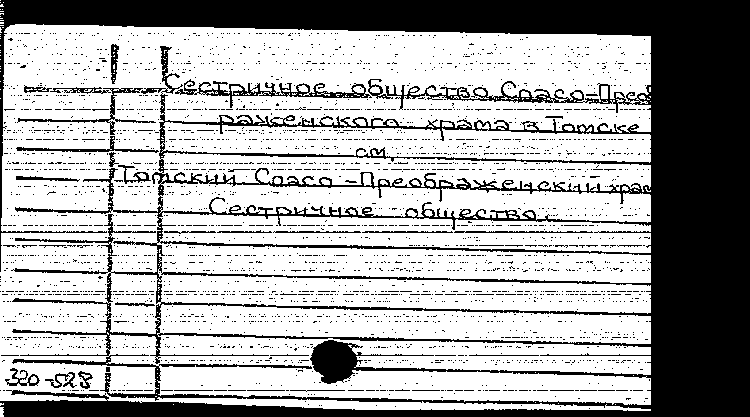 Сестричное общество Спасо-Прео
раженского храма в Томске
см.
Томский Спасо-Преображенский хра
Сестричное общество.
320-528